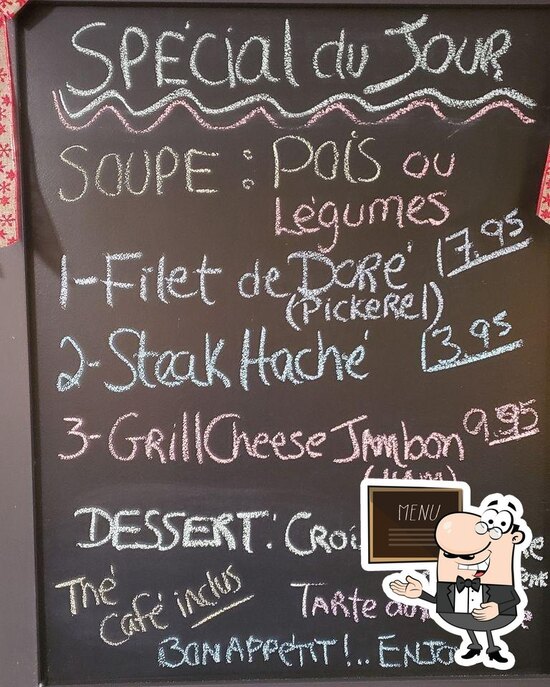 SPÉCIAL du JOUR
SOUPE : POIS OU
LéGUMES
1-Filet de DORé 17.95
(PickeREl)
2-Steak Haché 13.95
3-GRillCheese Jambon 9.95
(HAM)
DESSERT: CROI
MENU
Thé
Café inclus
TARTE
BON APPéTIT!.. ENJO